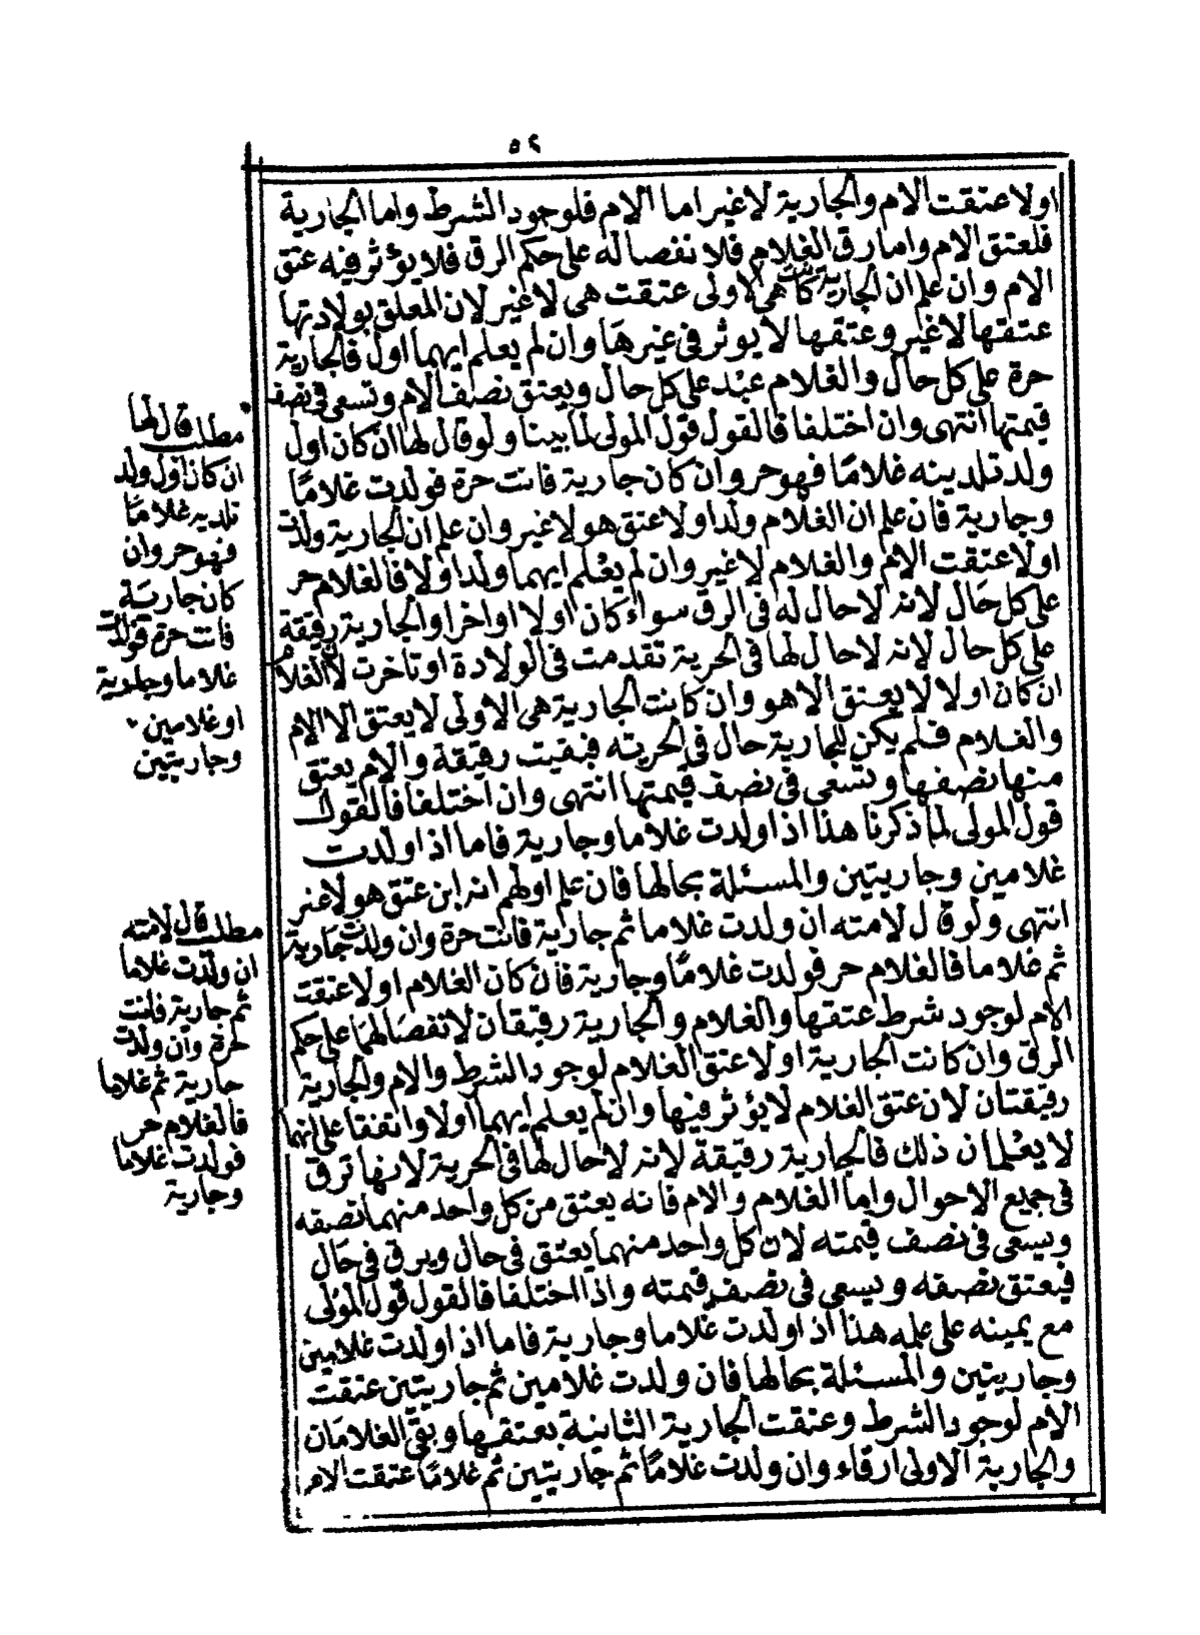 ٥٢
اولا عتقت الام والجارية لا غير اما الام فلوجود الشرط واما الجارية
فلعتق الام واما رق الغلام فلانفصاله على حكم الرق فلا يؤثر فيه عتق
الام وان علم ان الجارية كانت هي الاولى عتقت هي لا غير لان المعلق بولادتها
عتقها لا غير وعتقها لا يوثر في غيرها وان لم يعلم ايهما اول فالجارية
حرة على كل حال والغلام عبد على كل حال ويعتق نصف الام وتسعى في نصف
قيمتها انتهى وان اختلفا فالقول قول المولى لما بينا ولو قال لها ان كان اول
ولد تلدينه غلاما فهو حر وان كان جارية فانت حرة فولدت غلاما
وجارية فان علم ان الغلام ولد اولا عتق هو لا غير وان علم ان الجارية ولدت
اولا عتقت الام والغلام لا غير وان لم يعلم ايهما ولد اولا فالغلام حر
على كل حال لانه لا حال له في الرق سواء كان اولا او اخرا والجارية رقيقة
على كل حال لانه لا حال لها في الحرية تقدمت في الولادة او تاخرت لان الغلام
ان كان اولا لا يعتق الا هو وان كانت الجارية هي الاولى لا يعتق الا الام
والغلام فلم يكن للجارية حال في الحريته فبقيت رقيقة والام يعتق
منها نصفها وتسعى في نصف قيمتها انتهى وان اختلفا فالقول
قول المولى لما ذكرنا هذا اذا ولدت غلاما وجارية فاما اذا ولدت
غلامين وجاريتين والمسئلة بحالها فان علم اولهم انه ابن عتق هو لا غير
انتهى ولو قال لامته ان ولدت غلاما ثم جارية فانت حرة وان ولدت جارية
ثم غلاما فالغلام حر فولدت غلاما وجارية فان كان الغلام اولا عتقت
الام لوجود شرط عتقها والغلام والجارية رقيقان لانفصالهما على حكم
الرق وان كانت الجارية اولا عتق الغلام لوجود الشرط والام والجارية
رقيقتان لان عتق الغلام لا يؤثر فيها وان لم يعلم ايهما اولا واتفقا على انهما
لا يعلمان ذلك فالجارية رقيقة لانه لا حال لها في الحرية لانها ترق
في جميع الاحوال واما الغلام والام فانه يعتق من كل واحد منهما نصفه
ويسعى في نصف قيمته لان كل واحد منهما يعتق في حال ويرق في حال
فيعتق نصفه ويسعى في نصف قيمته واذا اختلفا فالقول قول المولى
مع يمينه على علمه هذا اذا ولدت غلاما وجارية فاما اذا ولدت غلامين
وجاريتين والمسئلة بحالها فان ولدت غلامين ثم جاريتين عتقت
الام لوجود الشرط وعتقت الجارية الثانية بعتقها وبقى الغلامان
والجارية الاولى ارقاء وان ولدت غلاما ثم جاريتين ثم غلاما عتقت الام
مطلب قال لها
ان كان اول ولد
تلديه غلاما
فهو حر وان
كان جارية
فانت حرة فولدت
غلاما وجارية
او غلامين
وجاريتين
مطلب قال لامته
ان ولدت غلاما
ثم جارية فانت
حرة وان ولدت
جارية ثم غلاما
فالغلام حر
فولدت غلاما
وجارية